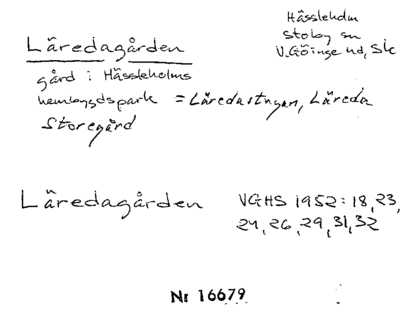 Hässleholm
Stoby sn
V. Göinge hd, Sk
Läredagården
gård i Hässleholms
hembygdspark = Läredastugan, Läreda
Storegård
Läredagården VGHS 1952: 18, 23,
24, 26, 29, 31, 32
Nr 16679